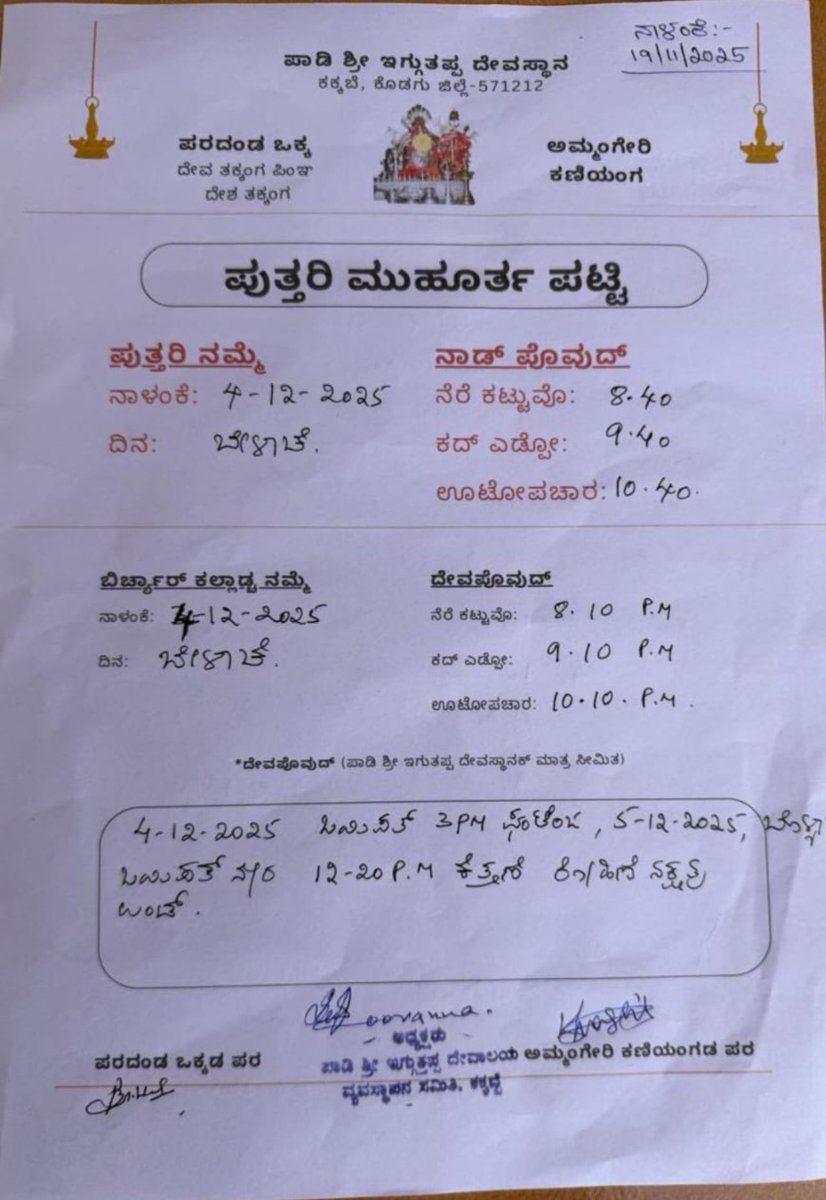 ನಾಳಂಕೆ:-
19/11/2025
ಪಾಡಿ ಶ್ರೀ ಇಗ್ಗುತಪ್ಪ ದೇವಸ್ಥಾನ
ಕಕ್ಕಬೆ, ಕೊಡಗು ಜಿಲ್ಲೆ-571212
ಪರದಂಡ ಒಕ್ಕ
ದೇವ ತಕ್ಕಂಗ ಪಿಂಞ
ದೇಶ ತಕ್ಕಂಗ
ಅಮ್ಮಂಗೇರಿ
ಕಣಿಯಂಗ
ಪುತ್ತರಿ ಮುಹೂರ್ತ ಪಟ್ಟಿ
ಪುತ್ತರಿ ನಮ್ಮೆ
ನಾಳಂಕೆ: 4-12-2025
ದಿನ: ಬೇಳಾಚೆ.
ನಾಡ್ ಪೊವುದ್
ನೆರೆ ಕಟ್ಟುವೊ: 8.40
ಕದ್ ಎಡ್ಪೋ: 9.40
ಊಟೋಪಚಾರ: 10.40.
ಬಿರ್ಚ್ಯಾರ್ ಕಲ್ಲಾಡ್ಚ ನಮ್ಮೆ
ನಾಳಂಕೆ: 4-12-2025
ದಿನ: ಬೇಳಾಚೆ.
ದೇವಪೊವುದ್
ನೆರೆ ಕಟ್ಟುವೊ: 8.10 P.M
ಕದ್ ಎಡ್ಪೋ: 9.10 P.M
ಊಟೋಪಚಾರ: 10.10. P.M.
*ದೇವಪೊವುದ್ (ಪಾಡಿ ಶ್ರೀ ಇಗುತಪ್ಪ ದೇವಸ್ಥಾನಕ್ ಮಾತ್ರ ಸೀಮಿತ)
4-12-2025 3PM , 5-12-2025,
12-20 P.M ನಕ್ಷತ್ರ
ಉಂಡ್.
ಅಧ್ಯಕ್ಷರು
ಪಾಡಿ ಶ್ರೀ ಇಗ್ಗುತ್ತಪ್ಪ ದೇವಾಲಯ
ವ್ಯವಸ್ಥಾಪನ ಸಮಿತಿ, ಕಕ್ಕಬ್ಬೆ
ಪರದಂಡ ಒಕ್ಕಡ ಪರ
ಅಮ್ಮಂಗೇರಿ ಕಣಿಯಂಗಡ ಪರ